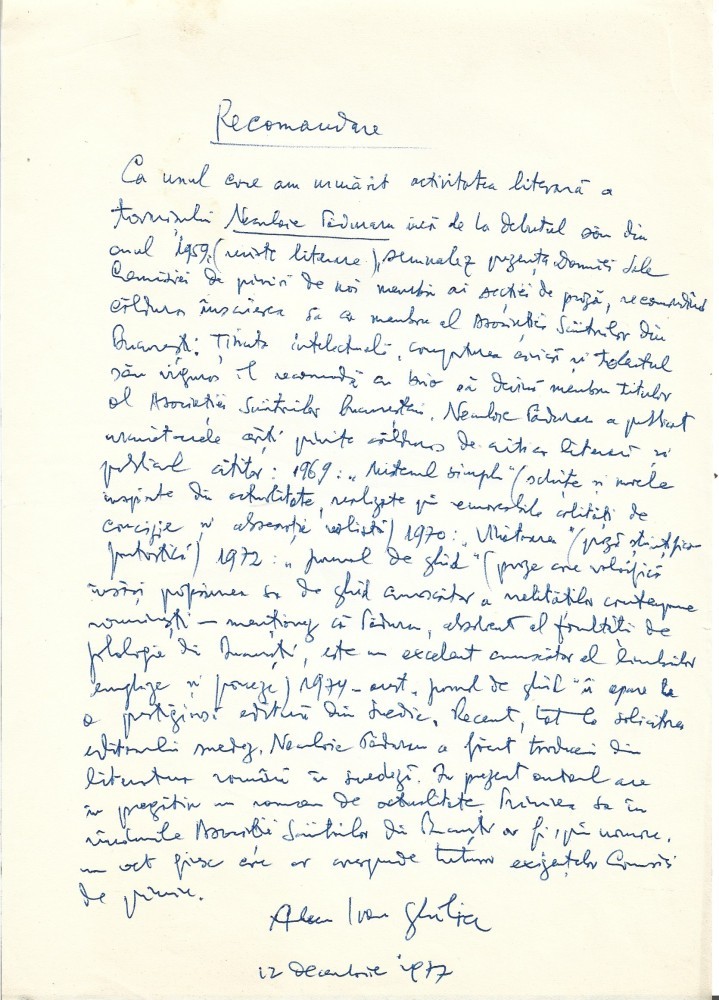 Recomandare
Ca unul care am urmărit activitatea literară a
tovarășului Neculaie Păduraru încă de la debutul său din
anul 1959 (reviste literare), semnalez prezența domniei sale
Comisiei de primiri de noi membri ai secției de proză, recomandând
călduros înscrierea sa ca membru al Asociației Scriitorilor din
București. Ținuta intelectuală, comportarea civică și talentul
său viguros îl recomandă cu brio să devină membru titular
al Asociației Scriitorilor București. Neculaie Păduraru a publicat
următoarele cărți primite călduros de critica literară și
publicul cititor: 1969: „ simplu" (schițe și nuvele
inspirate din actualitate, realizate cu remarcabile calități de
concizie și observație realistă) 1970: „Vânătoarea" (proză științifico-
fantastică) 1972: „Jurnal de ghid" (proze care valorifică
însăși profesiunea sa de ghid cunoscător a realităților contemporane
românești — menționez că Păduraru, absolvent al facultății de
filologie din București, este un excelent cunoscător al limbilor
engleze și ) 1974 – acest „Jurnal de ghid" îi apare la
o prestigioasă editură din Suedia. Recent, tot la solicitarea
editorului suedez, Neculaie Păduraru a făcut traduceri din
literatura română în suedeză. În prezent autorul are
în pregătire un roman de actualitate. Primirea sa în
rândurile Asociației Scriitorilor din București ar fi,
un act firesc care ar corespunde tuturor exigențelor Comisiei
de primire.
Alecu Ivan Ghilia
12 decembrie 1977